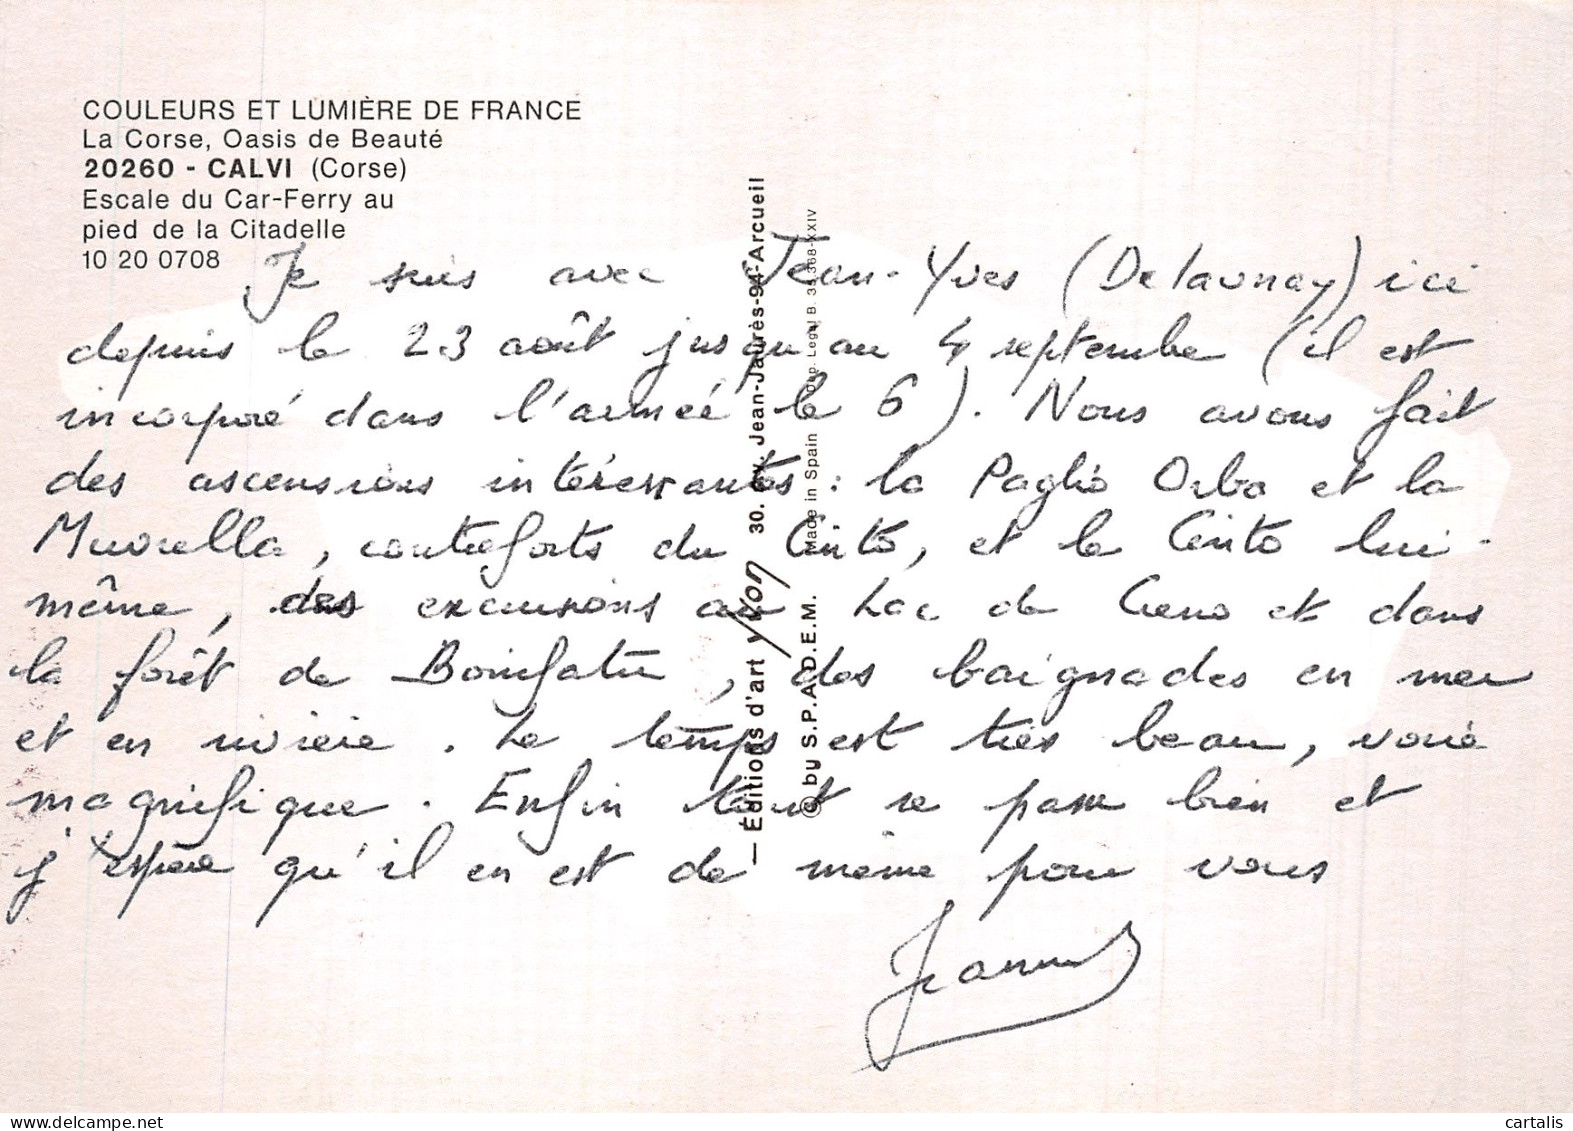 COULEURS ET LUMIÈRE DE FRANCE
La Corse, Oasis de Beauté
20260 - CALVI (Corse)
Escale du Car-Ferry au
pied de la Citadelle
10 20 0708
Je suis avec Jean-Yves (Delaunay) ici
depuis le 23 août jusqu'au 4 septembre (il est
incorporé dans l'armée le 6). Nous avons fait
des ascensions intéressantes : la Paglia Orba et la
Muvrella, contreforts du Cinto, et le Cinto lui-
même, des excursions au Lac de Creno et dans
la forêt de Bonifatu, des baignades en mer
et en rivière. Le temps est très beau, voire
magnifique. Enfin tout se passe bien et
j'espère qu'il en est de même pour vous
— Éditions d'art yvon 30, av. Jean-Jaurès-94-Arcueil
© by S.P.A.D.E.M. Made in Spain Dep. Legal B. XXIV
cartalis